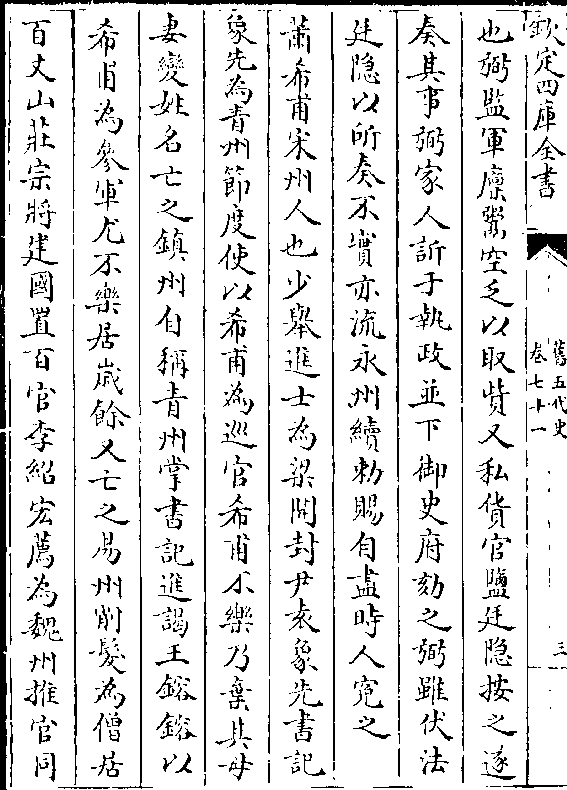 欽定四庫全書
舊五代史
卷七十一
三
也弼監軍廩粥空乏以取貲又私貨官鹽廷隱按之遂
奏其事弼家人訴于執政並下御史府劾之弼雖伏法
廷隱以所奏不實亦流永州續勅賜自盡時人寃之
蕭希甫宋州人也少舉進士為梁開封尹袁象先書記
象先為青州節度使以希甫為巡官希甫不樂乃棄其母
妻變姓名亡之鎮州自稱青州掌書記進謁王鎔鎔以
希甫為參軍尤不樂居歲餘又亡之易州削髮為僧居
百丈山莊宗將建國置百官李紹宏薦為魏州推官同